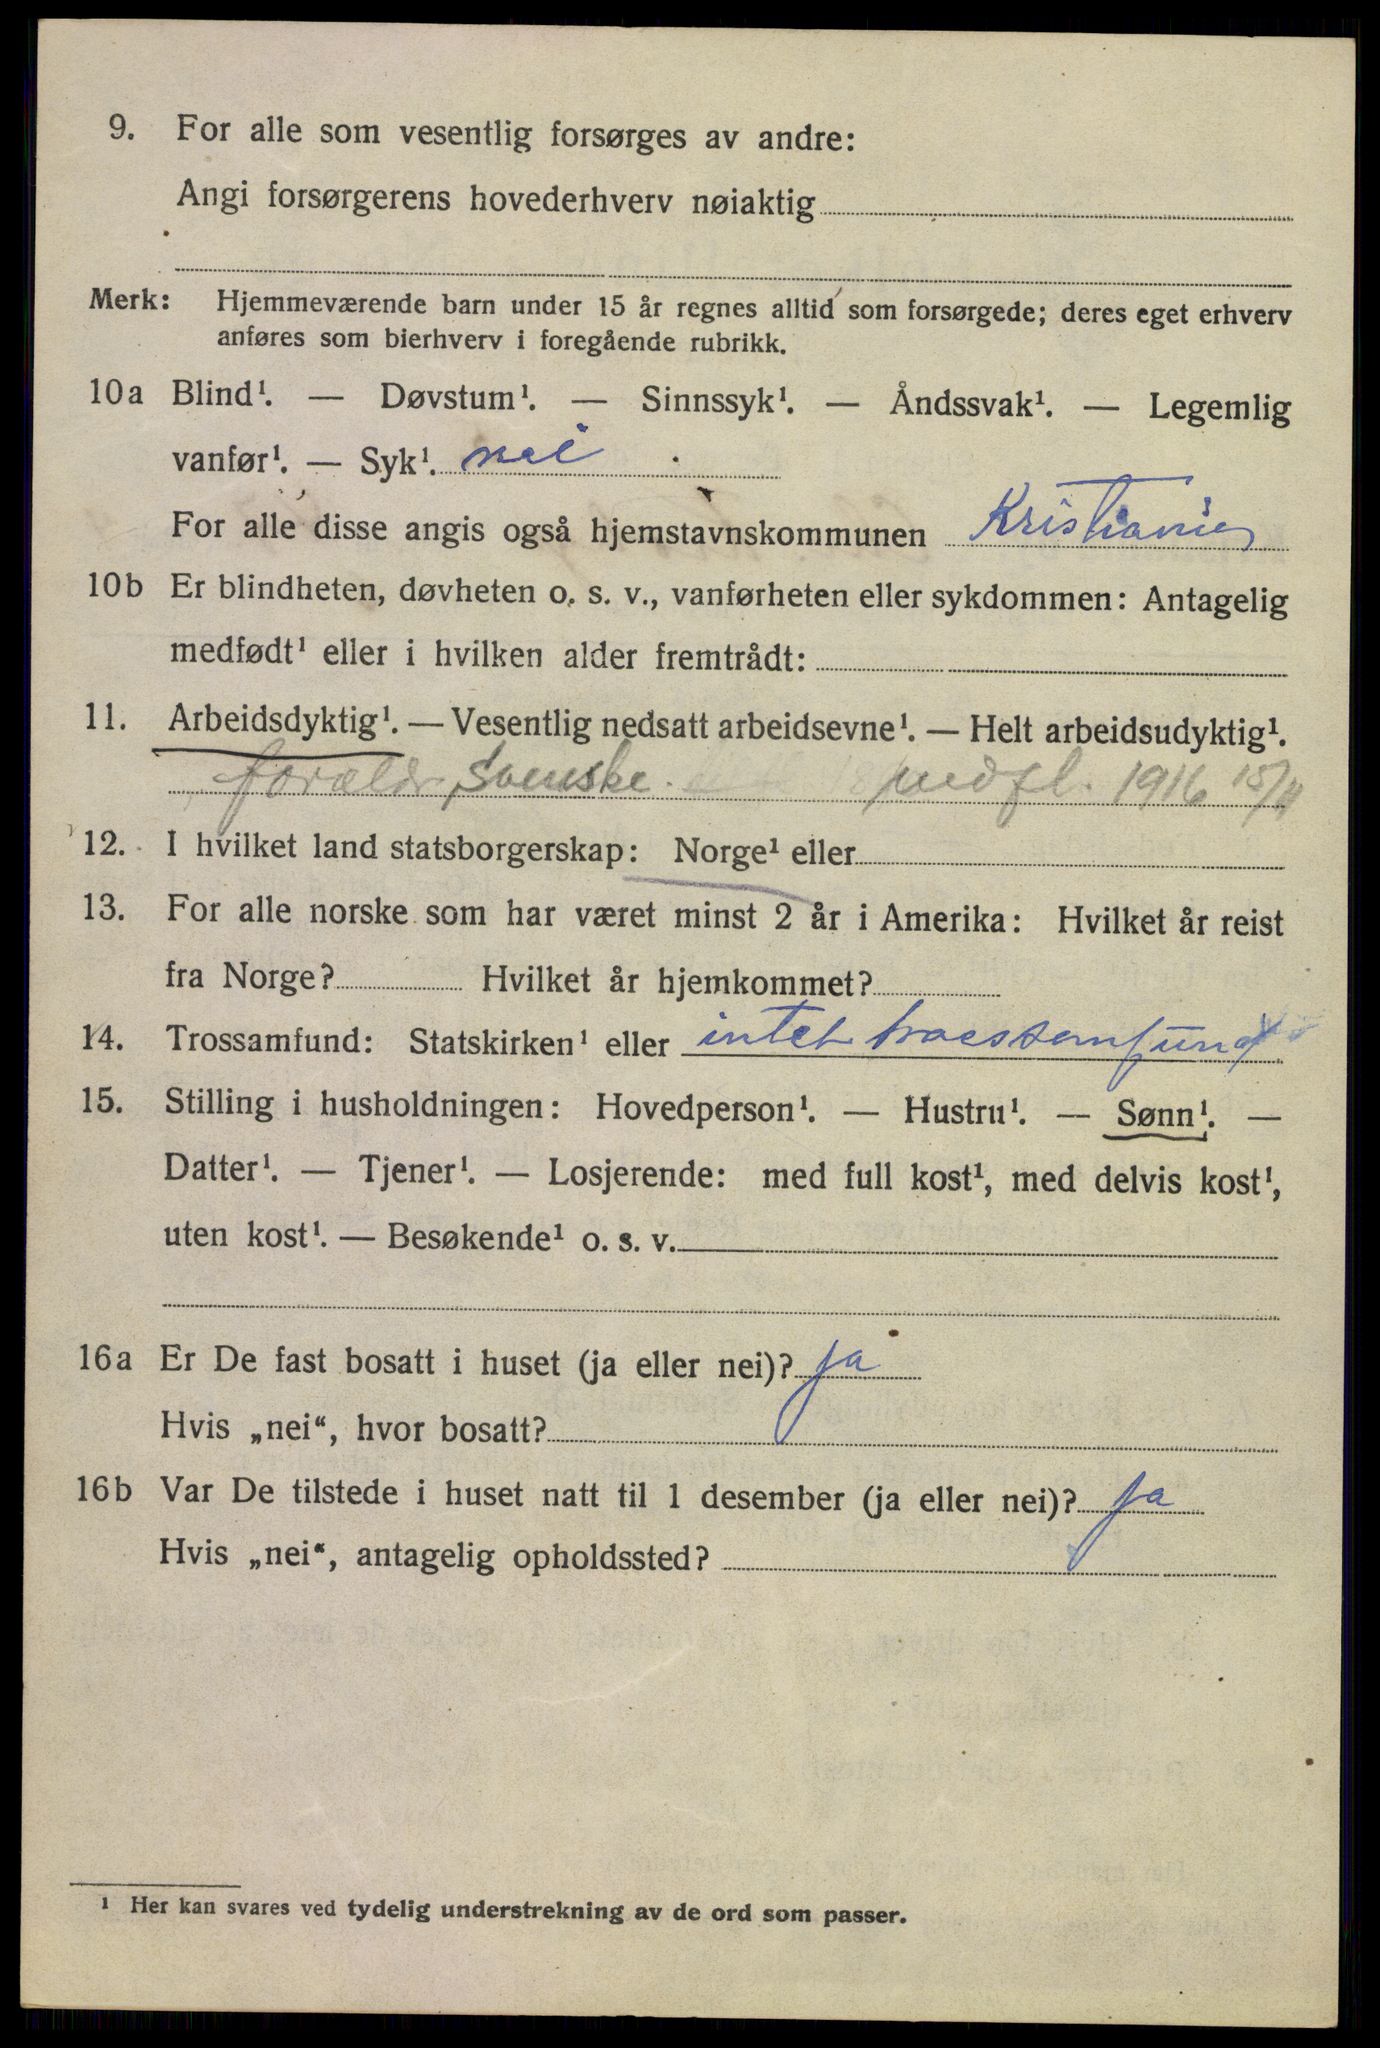 9. For alle som vesentlig forsørges av andre:
Angi forsørgerens hovederhverv nøiaktig
Merk: Hjemmeværende barn under 15 år regnes alltid som forsørgede; deres eget erhverv
anføres som bierhverv i foregående rubrikk.
10a Blind¹. — Døvstum¹. — Sinnssyk¹. — Åndssvak¹. — Legemlig
vanfør¹. — Syk¹. nei
For alle disse angis også hjemstavnskommunen Kristiania
10b Er blindheten, døvheten o. s. v., vanførheten eller sykdommen: Antagelig
medfødt¹ eller i hvilken alder fremtrådt:
11. Arbeidsdyktig¹. — Vesentlig nedsatt arbeidsevne¹. — Helt arbeidsudyktig¹.
forældr svenske. indfl. 1916 15/11
12. I hvilket land statsborgerskap: Norge¹ eller
13. For alle norske som har været minst 2 år i Amerika: Hvilket år reist
fra Norge? Hvilket år hjemkommet?
14. Trossamfund: Statskirken¹ eller intet troessamfund
15. Stilling i husholdningen: Hovedperson¹. — Hustru¹. — Sønn¹. —
Datter¹. — Tjener¹. — Losjerende: med full kost¹, med delvis kost¹,
uten kost¹. — Besøkende¹ o. s. v.
16a Er De fast bosatt i huset (ja eller nei)? ja
Hvis „nei“, hvor bosatt?
16b Var De tilstede i huset natt til 1 desember (ja eller nei)? ja
Hvis „nei“, antagelig opholdssted?
¹ Her kan svares ved tydelig understrekning av de ord som passer.